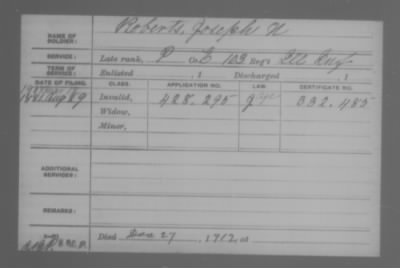 NAME OF SOLDIER: Roberts, Joseph H
SERVICE: Late rank, P Co. E, 103 Reg't Ill Inf
TERM OF SERVICE: Enlisted , 1 Discharged , 1
DATE OF FILING. CLASS. APPLICATION NO. LAW. CERTIFICATE NO.
1881 Aug 29 Invalid, 428.295 332.485
Widow,
Minor,
ADDITIONAL SERVICES:
REMARKS:
Died Dec 27, 1912, at